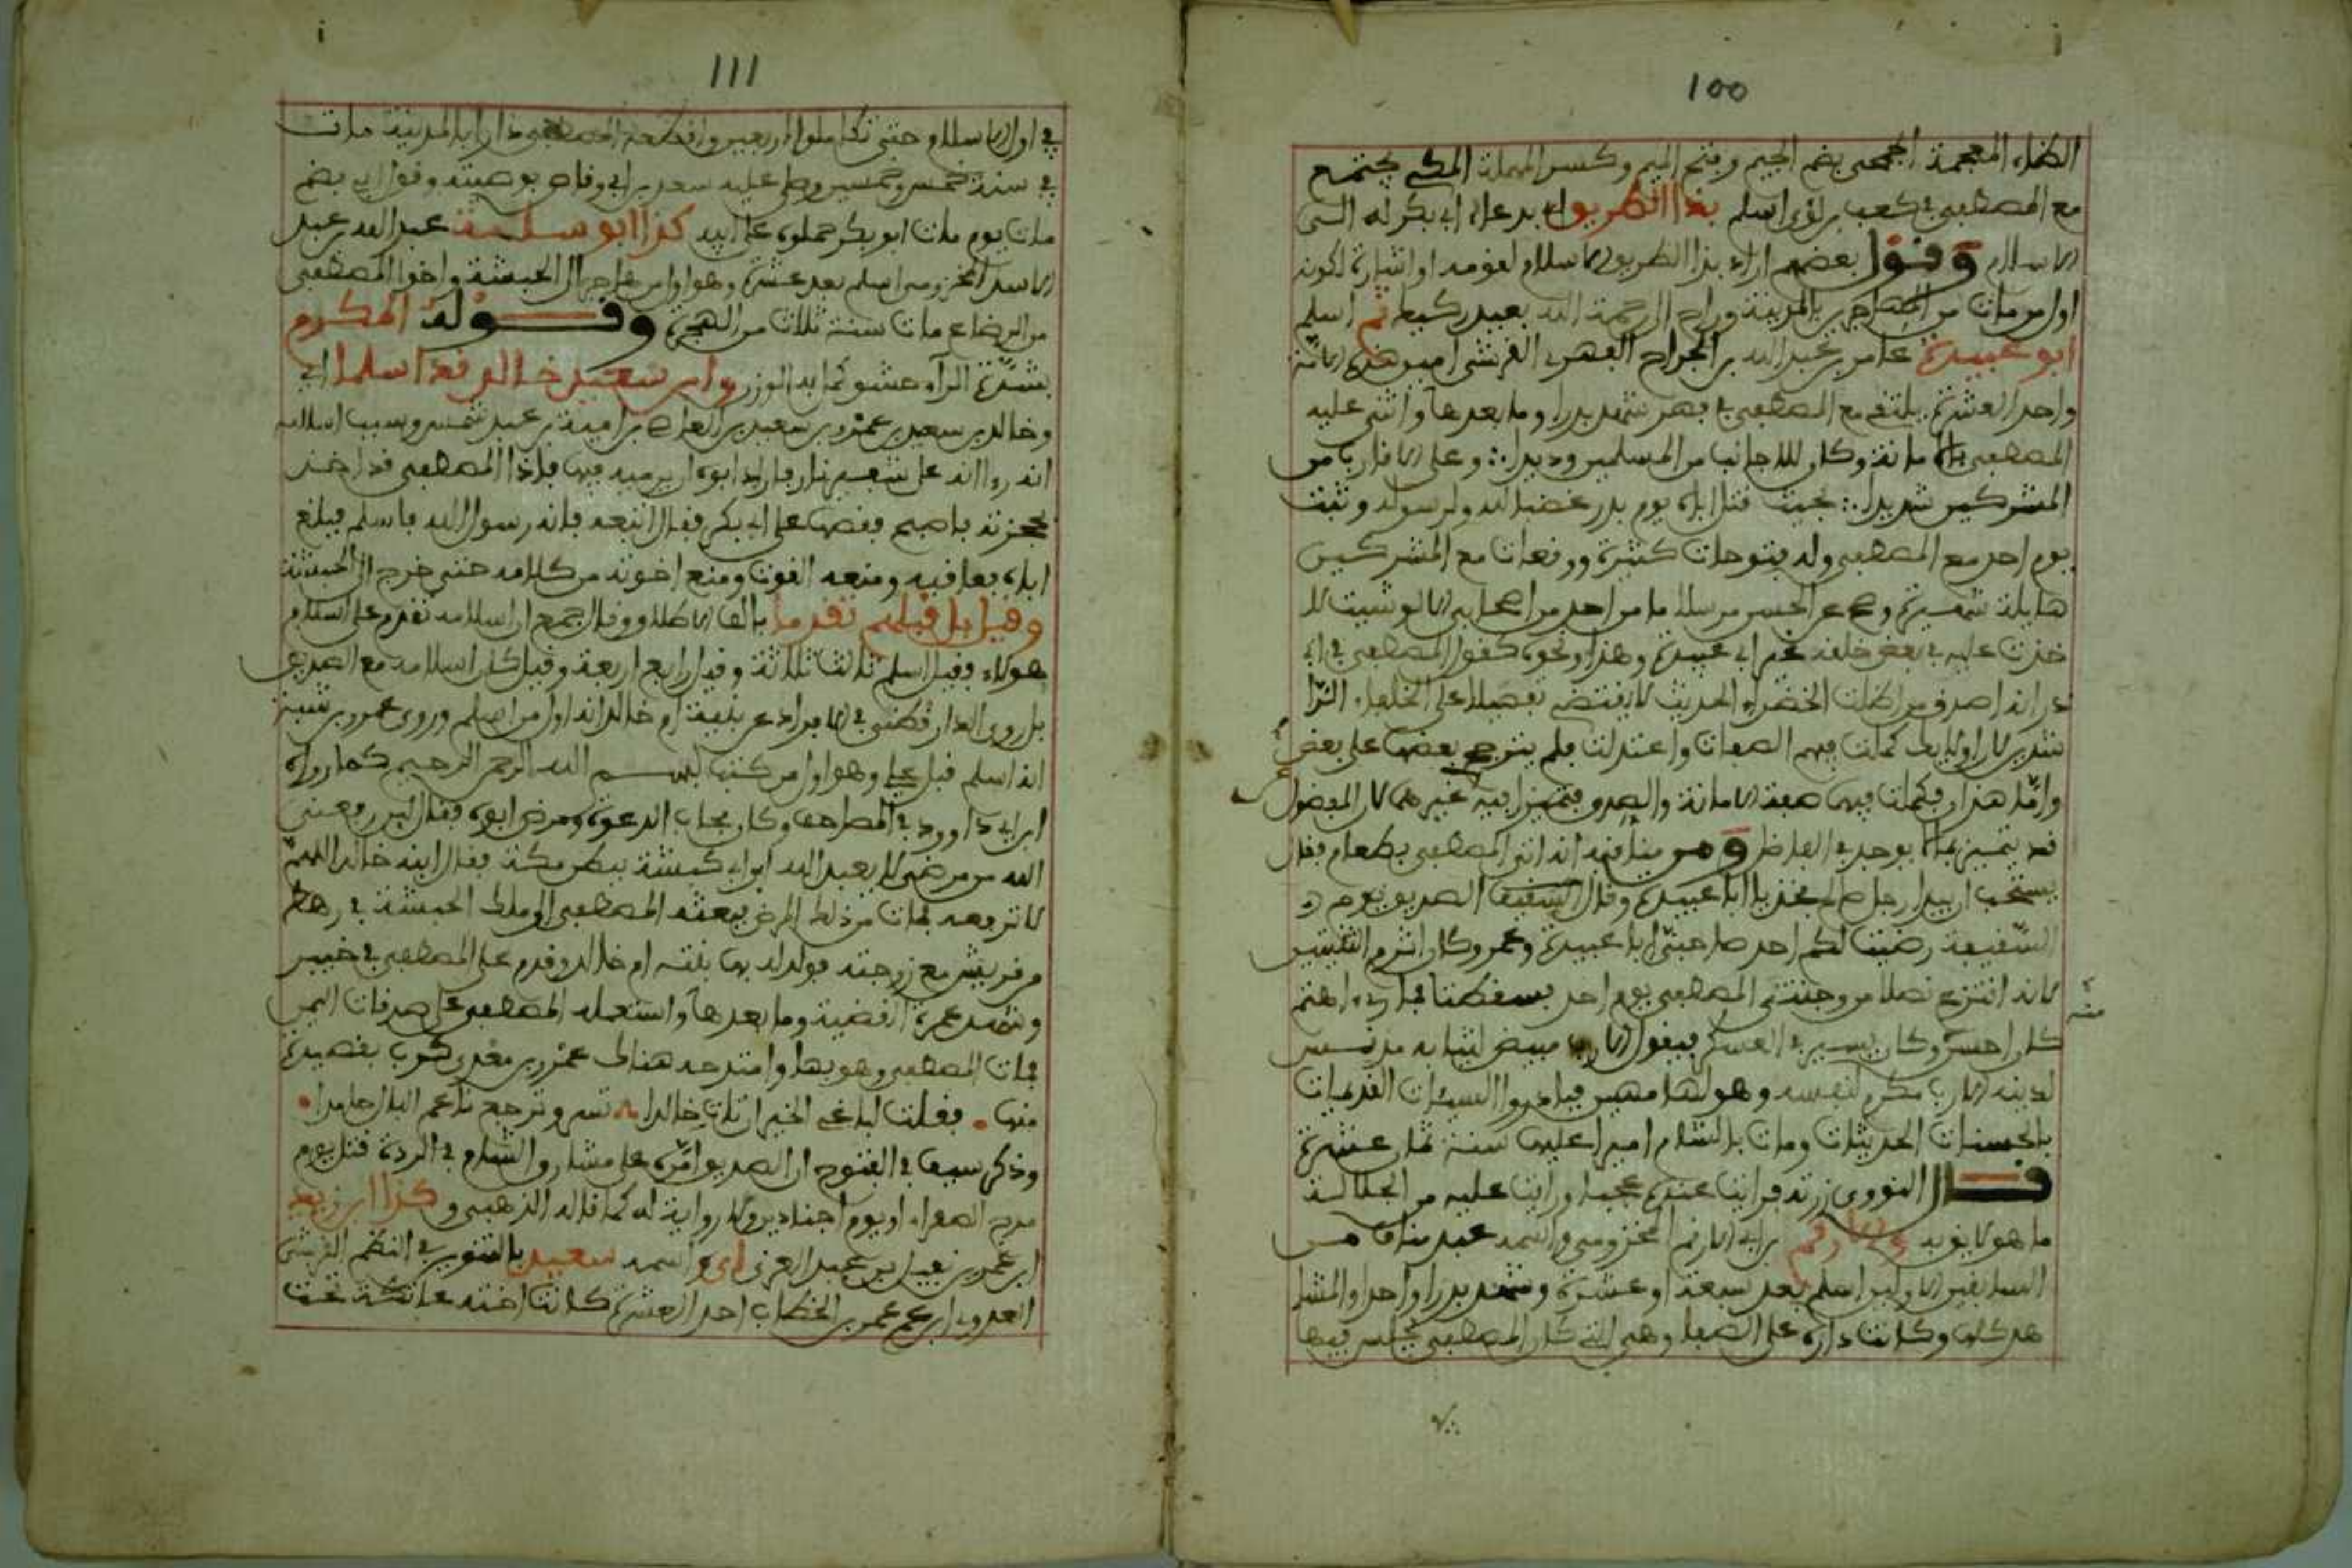 100
الظاء المعجمة الجمحي بضم الجيم وفتح الميم وكسر المهملة المكي يجتمع
مع المصطفى في كعب بن لؤي اسلم بهذا الطريق اي بدعاء ابي بكر له الى
الاسلام وقول بعضهم اراد بهذا الطريق الاسلام لقومه او اشارة لكونه
اول من مات من المهاجرين بالمدينة وراح الى رحمة الله بعيد ركيعا ثم اسلم
ابو عبيدة عامر بن عبد الله بن الجراح الفهري القرشي امين هذه الامة
واحد العشرة يلتقي مع المصطفى في فهر شهد بدرا وما بعدها واثنى عليه
المصطفى بالامانة وكان للاجانب من المسلمين وديدا ∴ وعلى الاقارب من
المشركين شديدا ∴ بحيث قتل اباه يوم بدر غضبا لله ولرسوله وثبت
يوم احد مع المصطفى وله فتوحات كثيرة ووقعات مع المشركين
هايلة شهيرة وصح عن الحسن مرسلا ما من احد من اصحابي الا لو شيت لا
خذت عليه في بعض خلقه غير ابي عبيدة وهذا ونحوه كقول المصطفى في ابي
ذر انه اصدق من اظلت الخضراء الحديث لا يقتضي تفضيلا على الخلفاء الرا
شدين لان اولايك كملت فيهم الصفات واعتدلت فلم يترجح بعضها على بعض
واما هذان فكملت فيهما صفة الامانة والصدق فتميزا فيه عن غيرهما لان المفضول
قد يتميز بما لا يوجد في الفاضل ومن مناقبه انه اتى المصطفى بطعام فقال
يستحب ان يبدا رجل صالح فخذ يا ابا عبيدة وقال الصديق يوم
السقيفة رضيت لكم احد صاحبي ابا عبيدة وعمر وكان اثرم الثنيتين
لانه انتزع نصلا من وجنتي المصطفى يوم احد فسقطتا فما رءي اهتم
منه
كان احسن وكان يسير في العسكر فيقول الا رب مبيض لثيابه مدنس
لدينه الا رب مكرم لنفسه وهو لها مهين فبادروا السيئات القديمات
بالحسنات الحديثات ومات بالشام اميرا عليها سنة ثمان عشرة
قال النووي زرته فرايت عنده عجبا ورايت عليه من الجلالة
ما هو لايق به والارقم بن ابي الارقم المخزومي واسمه عبد مناف من
السابقين الاولين اسلم بعد سبعة او عشرة وشهد بدرا واحدا والمشا
هد كلها وكانت داره على الصفا وهي التي كان المصطفى يجلس فيها
111
في اول الاسلام حتى تكاملوا اربعين واقطعه المصطفى دارا بالمدينة مات
في سنة خمس وخمسين وصلى عليه سعد بن ابي وقاص بوصيته وقول بعضهم
مات يوم مات ابو بكر حملوه على ابيه كذا ابو سلمة عبد الله بن عبد
الاسد المخزومي اسلم بعد عشرة وهو اول من هاجر الى الحبشة واخو المصطفى
من الرضاع مات سنة ثلاث من الهجرة وقوله المكرم
بشدة الراء حشو كمل به الوزن وابن سعيد خالد قد اسلما اي
وخالد بن سعيد بن عمرو بن سعيد بن العاص بن امية بن عبد شمس وسبب اسلامه
انه رءا انه على شفير نار فاراد ابوه ان يرميه فيها فاذا المصطفى قد اخذ
بحجزته فاصبح فقصها على ابي بكر فقال اتبعه فانه رسول الله فاسلم فبلغ
اباه فعاقبه ومنعه القوت ومنع اخوته من كلامه حتى خرج الى الحبشة
وقيل بل قبلهم تقدما بالف الاطلاق وقال جمع ان اسلامه تقدم على اسلام
هولاء فقيل اسلم ثالث ثلاثة وقيل رابع اربعة وقيل كان اسلامه مع الصديق
بل روى الدارقطني في الافراد عن بنته ام خالد انه اول من اسلم وروى عمرو بن شبة
انه اسلم قبل علي وهو اول من كتب بسم الله الرحمن الرحيم كما رواه
ابن ابي داوود في المصاحف وكان مجاب الدعوة ومرض ابوه فقال لين رفعني
الله من مرضي لا يعبد اله ابن ابي كبشة ببطن مكة فقال ابنه خالد اللهم
لا ترفعه فمات من ذلك المرض فبعثه المصطفى الى ملك الحبشة في رهط
من قريش مع زوجته فولد له بها بنته ام خالد وقدم على المصطفى في خيبر
وشهد عمرة القضية وما بعدها واستعمله المصطفى على صدقات اليمن
فمات المصطفى وهو بها وامتدحه هناك عمرو بن معدي كرب بقصيدة
منها • فقلت لباغي الخير ان تات خالدا • تسر وترجع ناعم البال حامدا •
وذكر سيف في الفتوح ان الصديق امره على مشارق الشام في الردة قتل يوم
مرج الصفراء او يوم اجنادين ولا رواية له كما قاله الذهبي وكذا ابن زيد
ابن عمرو بن نفيل بن عبد العزى اي واسمه سعيد بالتنوين في النظم القرشي
العدوي ابن عم عمر بن الخطاب احد العشرة كانت اخته عاتكة تحت